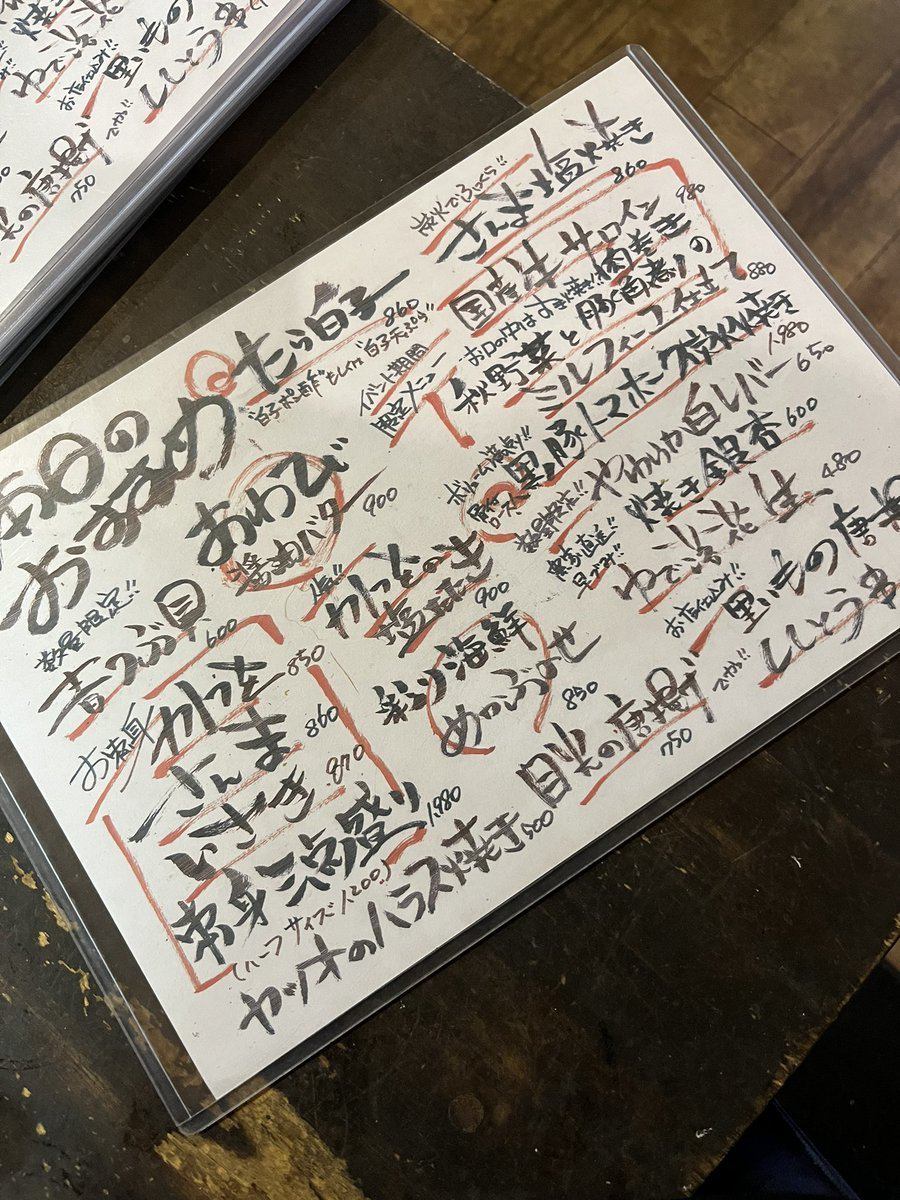 本日の
おすすめ
数量限定!!
青つぶ貝
600
お刺身
かつを
850
さんま
860
いさき
870
刺身三点盛り
1,980
(ハーフサイズ1,200)
カツオのハラス焼き
900
たら白子
860
白子ポン酢 もしくは 白子天ぷら
あわび
醤油バター
900
かつをの
塩たたき
900
彩り海鮮
めかぶのせ
850
目光の唐揚げ
750
炭火でふっくら!!
さんま塩焼き
860
イベント期間
限定メニュー
国産牛サーロイン
肉巻き
980
お口の中はすき焼き!!
秋野菜と豚角煮の
ミルフィーユ仕立て
880
ボリューム満点!!
骨付
ロース
黒豚トマホーク炭火焼き
1,980
数量限定!!
やわらか白レバー
650
農家直送
焼き銀杏
600
ゆで落花生
480
お店仕込み!!
里いもの唐揚
でかい!!
ししとう串
ゆで落花
お店仕込み!!
里いもの
ししとう串
の唐揚げ
でかい!!
750